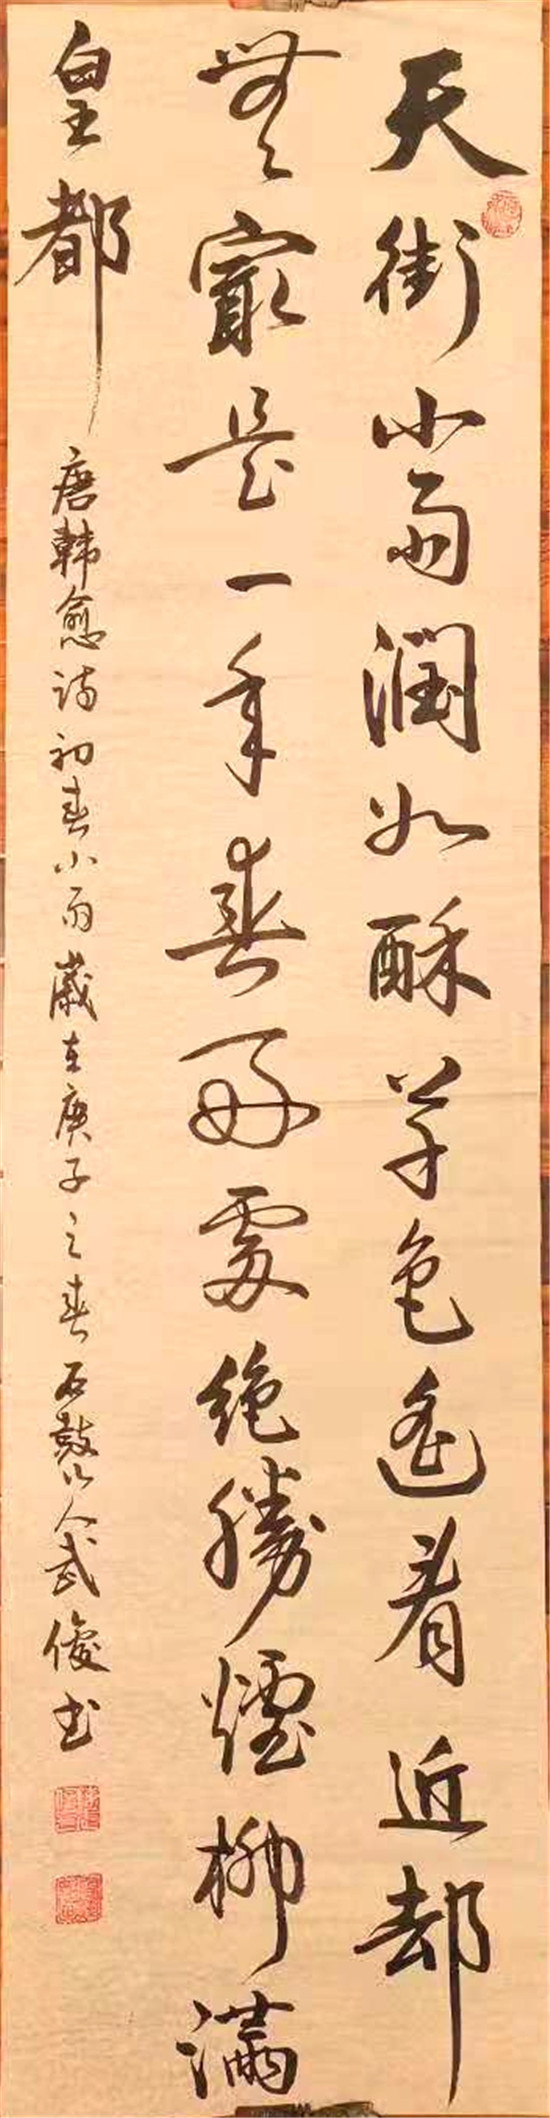 天街小雨潤如酥草色遙看近却
無最是一年春好處絶勝煙柳滿
皇都
唐韓愈詩初春小雨歲在庚子之春石鼓山人武俊書